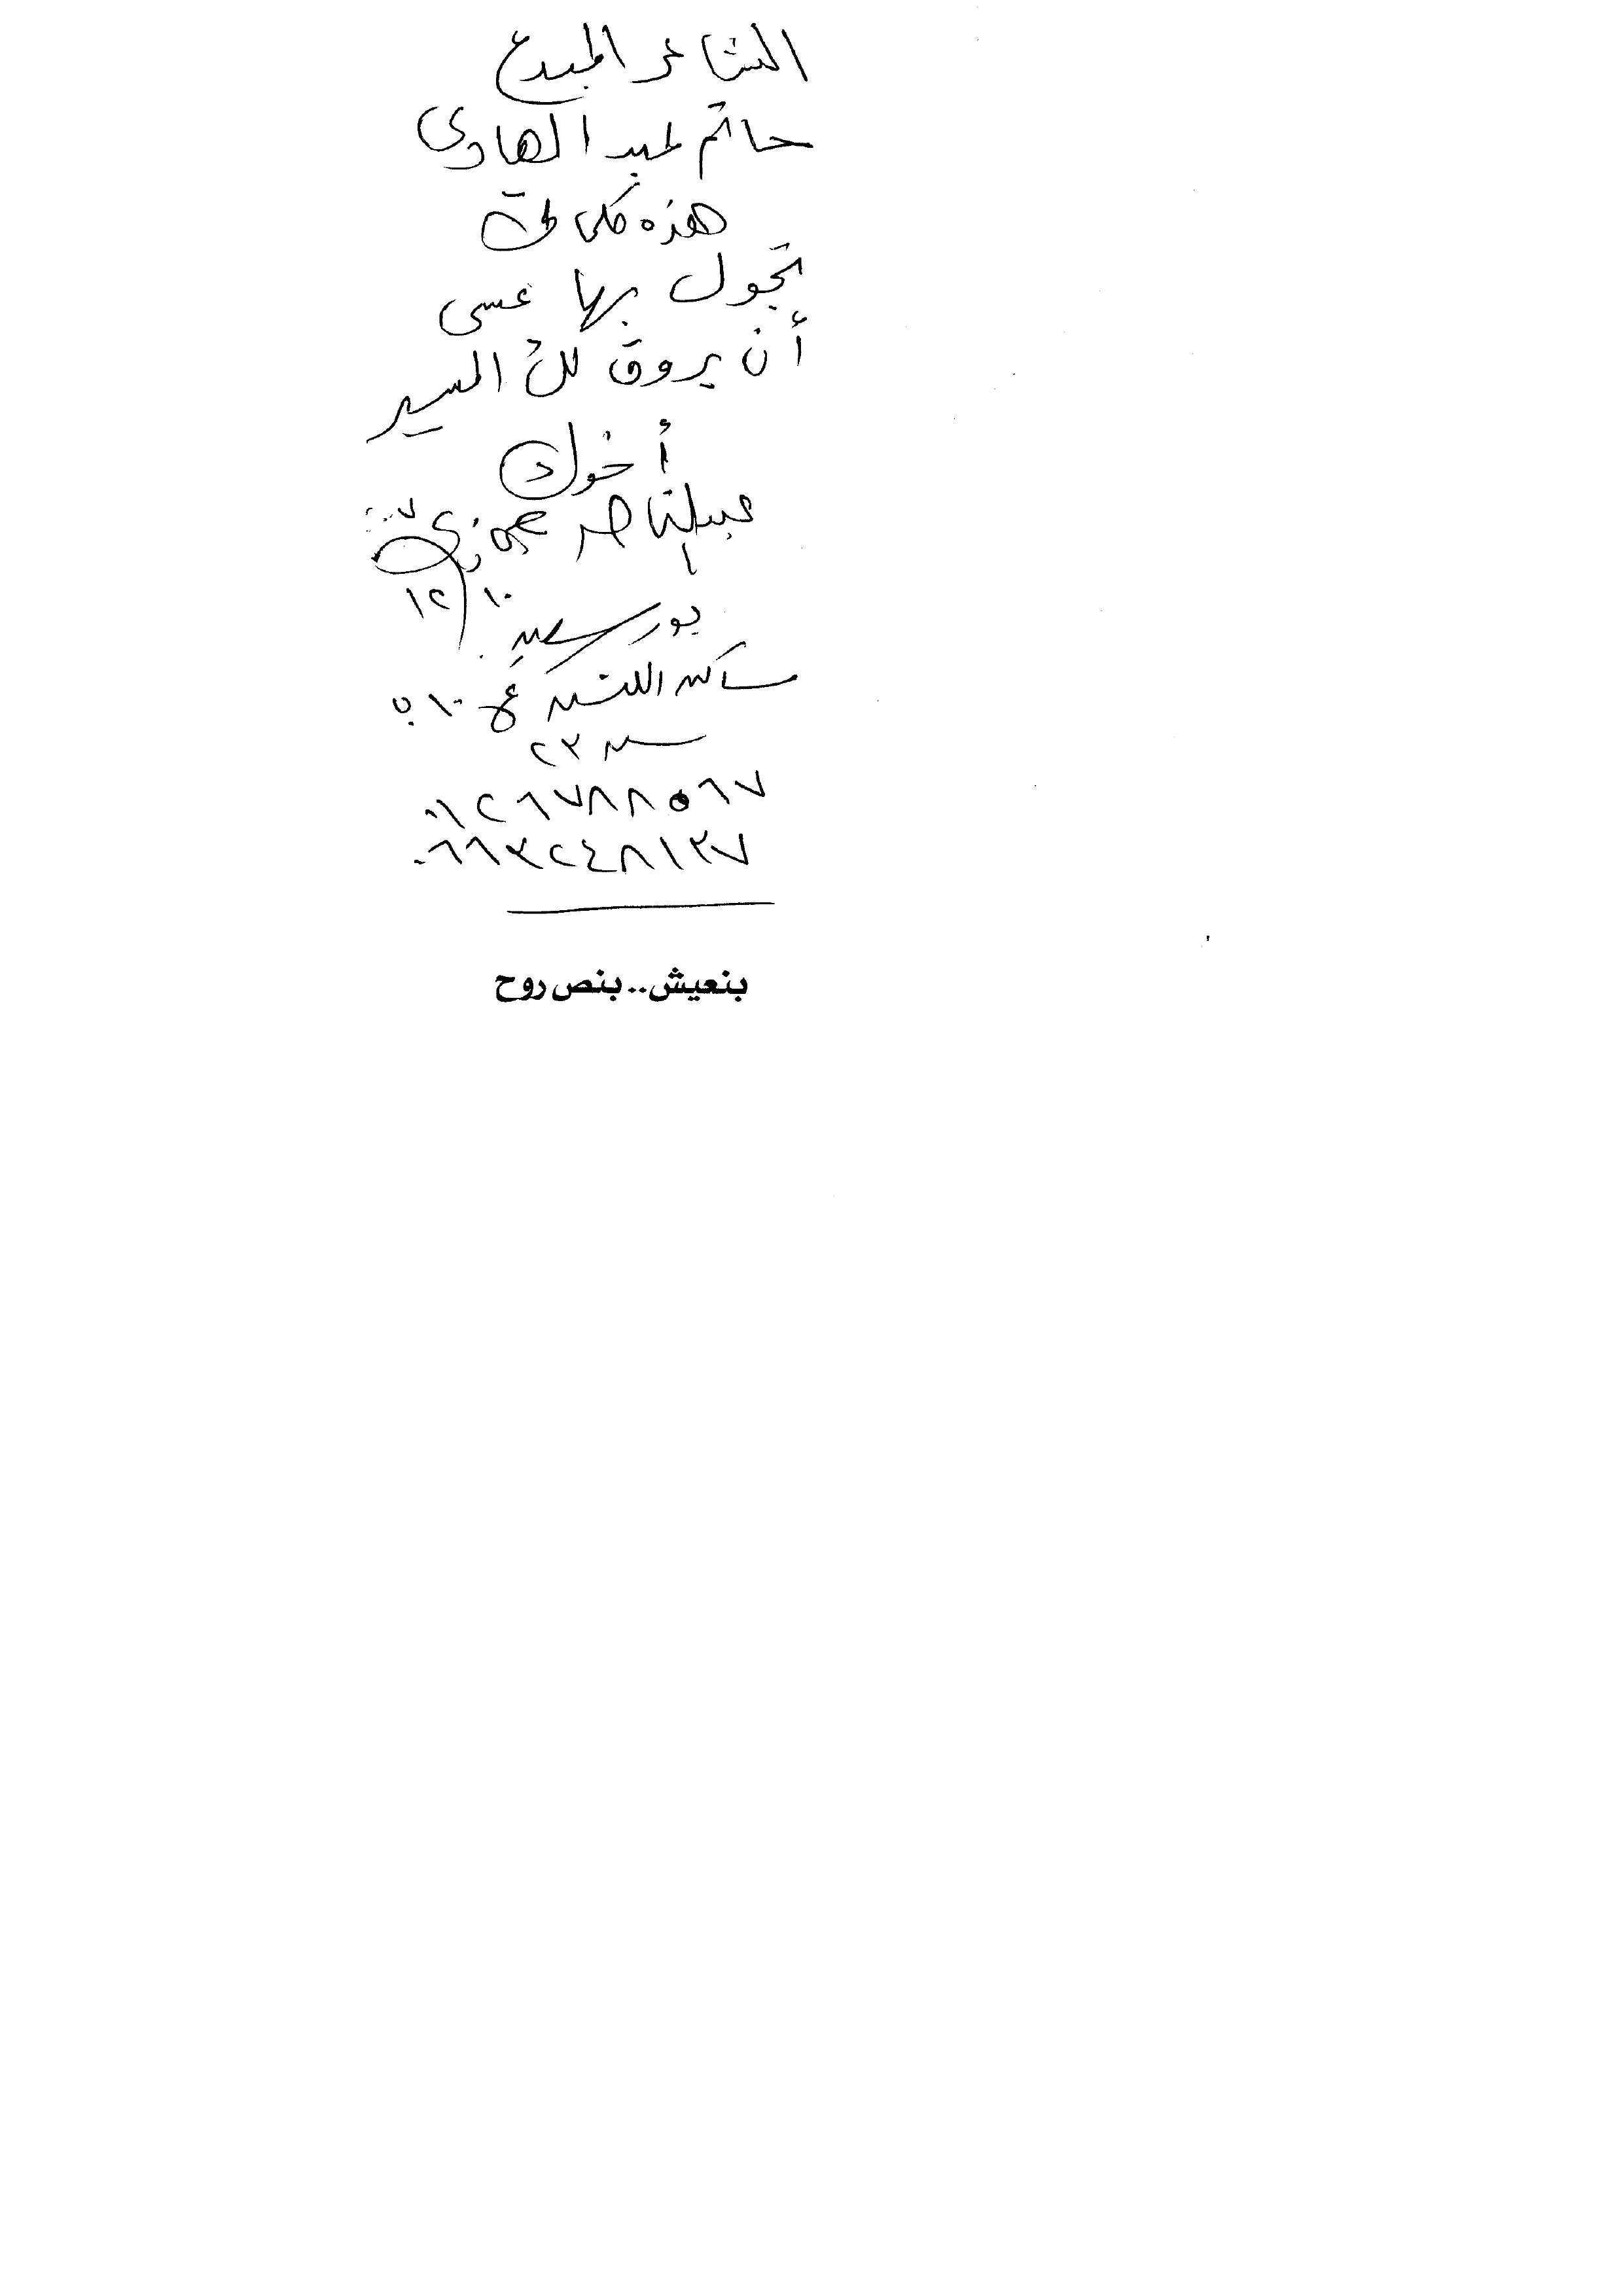 الشاعر المبدع
حاتم عبد الهادى
هذه كلماتى
تجول بها عسى
أن يروق لك المسير
أخوك
عبد الناصر حجازى
١٢/١٠
بور سعيد
مساكن اللنش ع ١٠
٢٣
٠١٢٦٧٨٨٥٦٧
٠٦٦٣٢٤٨١٣٧
بنعيش.. بنص روح